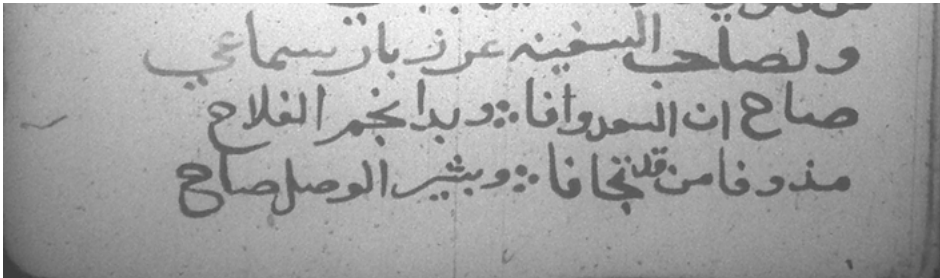 ولصاحب السفينه عرزبار سماعي
صاح ان السعد وافا ؞ وبدا نجم الفلاح
مذ وفا من قد تجافا ؞ وبشير الوصل صاح